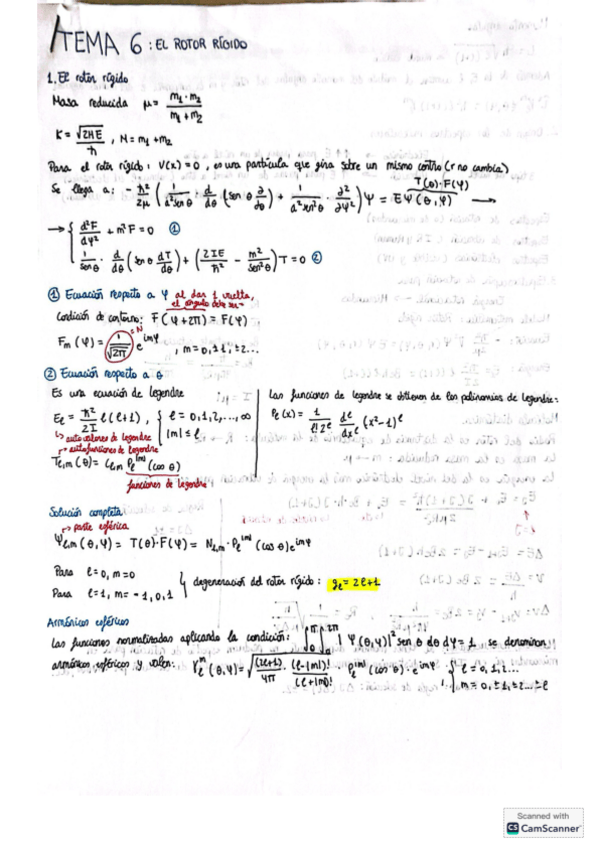 TEMA 6: EL ROTOR RÍGIDO
1. El rotor rígido
Masa reducida μ = m₁·m₂ / m₁+m₂
K = √2ME / ħ , M = m₁+m₂
Para el rotor rígido: V(x) = 0, es una partícula que gira sobre un mismo centro (r no cambia)
T(θ)·F(φ)
Se llega a: - ħ²/2μ (1/a² sen θ · d/dθ (sen θ ∂/∂θ) + 1/a² sen² θ · ∂²/∂φ²) Ψ = EΨ(θ, φ) →
→ { d²F/dφ² + m²F = 0 ①
1/sen θ · d/dθ (sen θ dT/dθ) + (2IE/ħ² - m²/sen² θ) T = 0 ②
① Ecuación respecto a φ al dar 1 vuelta,
el ángulo debe ser =
Condición de contorno: F(φ+2π) = F(φ)
= N
Fm(φ) = 1/√2π e^imφ , m = 0, ±1, ±2...
② Ecuación respecto a θ
Es una ecuación de legendre
Eℓ = ħ²/2I ℓ(ℓ+1), { ℓ = 0,1,2,...,∞
|m| ≤ ℓ
↳ autovalores de legendre
↱ autofunciones de legendre
Tℓ,m(θ) = Cℓ,m Pℓ^|m| (cos θ)
funciones de legendre
Las funciones de legendre se obtienen de los polinomios de legendre:
Pℓ(x) = 1/ℓ! 2^ℓ d^ℓ/dx^ℓ (x²-1)^ℓ
Solución completa
↱ parte esférica
Ψℓ,m(θ,φ) = T(θ)·F(φ) = Nℓ,m · Pℓ^|m| (cos θ) e^imφ
Para ℓ=0, m=0
Para ℓ=1, m=-1,0,1
} degeneración del rotor rígido: gℓ = 2ℓ+1
Armónicos esféricos
Las funciones normalizadas aplicando la condición: ∫₀^π ∫₀^2π |Ψ(θ,φ)|² sen θ dθ dφ = 1 se denominan
armónicos esféricos y valen: Yℓ^m (θ,φ) = √(2ℓ+1)/4π · (ℓ-|m|)!/(ℓ+|m|)! · Pℓ^|m| (cos θ) · e^imφ { ℓ = 0,1,2...
m = 0, ±1, ±2... ±ℓ
Scanned with
CS CamScanner